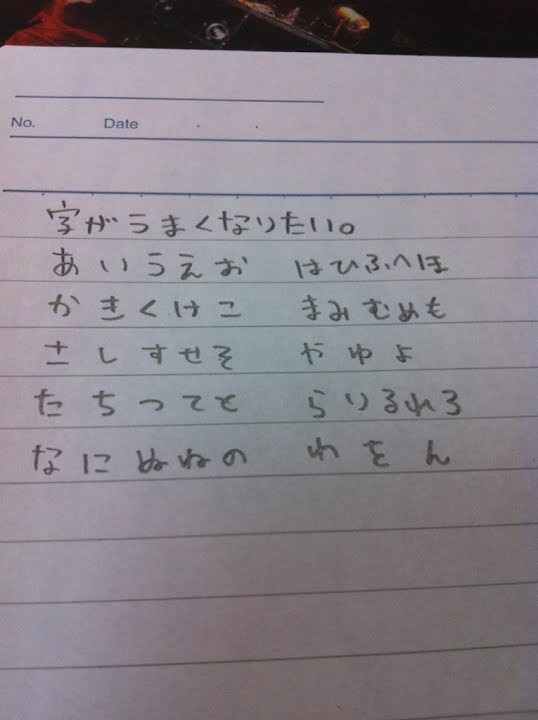 No. Date
字がうまくなりたい。
あいうえお はひふへほ
かきくけこ まみむめも
さしすせそ やゆよ
たちつてと らりるれろ
なにぬねの わをん